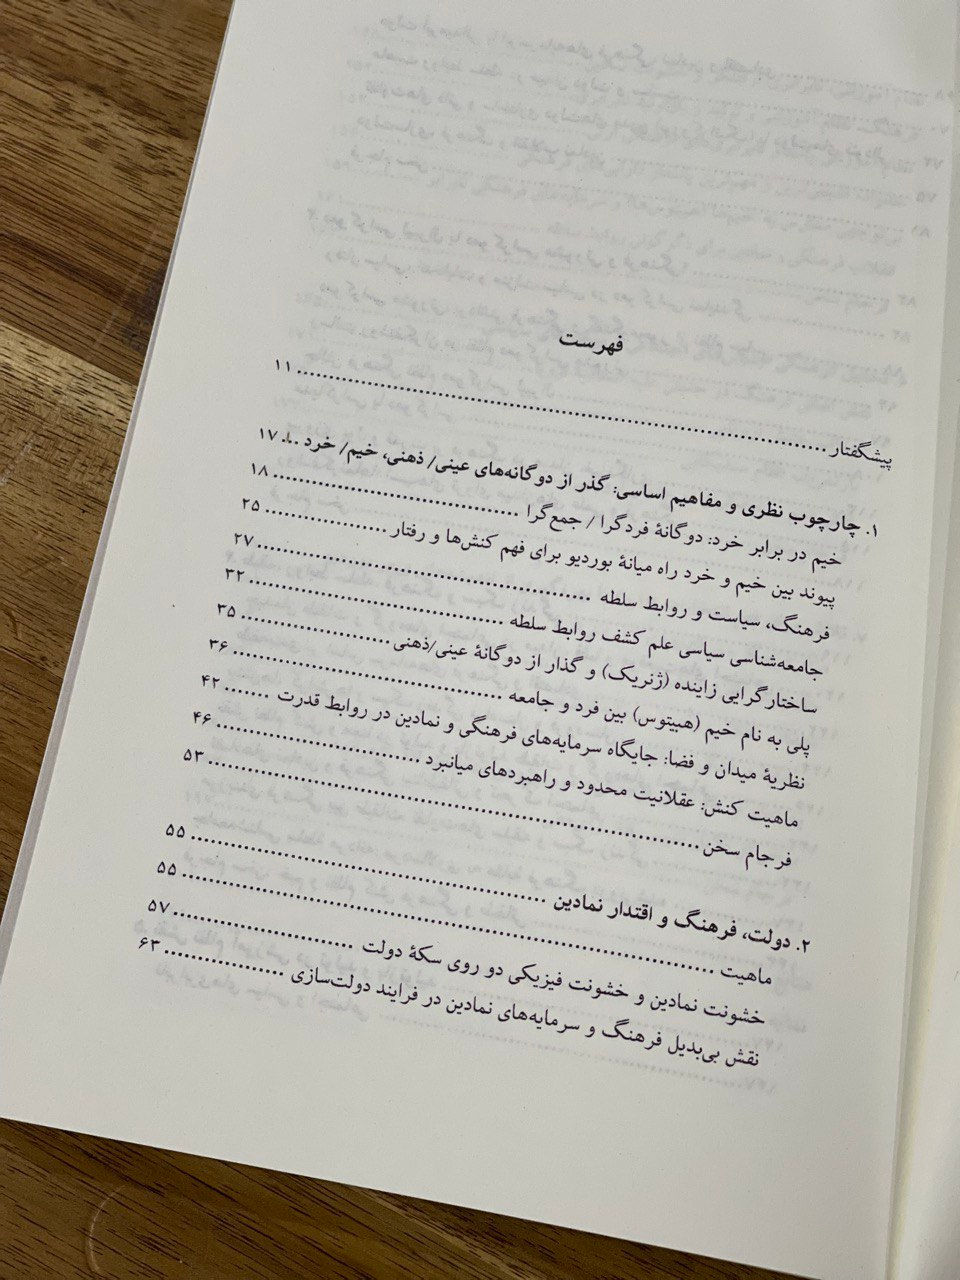 فهرست
پیشگفتار ........ ۱۱
۱. چارچوب نظری و مفاهیم اساسی: گذر از دوگانه‌های عینی/ ذهنی، خیم/ خرد ... ۱۷
خیم در برابر خرد: دوگانهٔ فردگرا / جمع‌گرا ........ ۱۸
پیوند بین خیم و خرد راه میانهٔ بوردیو برای فهم کنش‌ها و رفتار ........ ۲۵
فرهنگ، سیاست و روابط سلطه ........ ۲۷
جامعه‌شناسی سیاسی علم کشف روابط سلطه ........ ۳۲
ساختارگرایی زاینده (ژنریک) و گذار از دوگانهٔ عینی/ذهنی ........ ۳۵
پلی به نام خیم (هبیتوس) بین فرد و جامعه ........ ۳۶
نظریهٔ میدان و فضا: جایگاه سرمایه‌های فرهنگی و نمادین در روابط قدرت ........ ۴۲
ماهیت کنش: عقلانیت محدود و راهبردهای میانبرد ........ ۴۶
فرجام سخن ........ ۵۳
۲. دولت، فرهنگ و اقتدار نمادین ........ ۵۵
ماهیت ........ ۵۵
خشونت نمادین و خشونت فیزیکی دو روی سکهٔ دولت ........ ۵۷
نقش بی‌بدیل فرهنگ و سرمایه‌های نمادین در فرایند دولت‌سازی ........ ۶۳